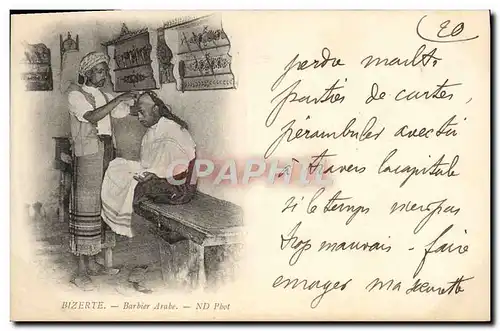 20
perdre mault.
parties de cartes,
pérambuler avec toi
à travers la capitale
si le temps n'est pas
trop mauvais - faire
enrager ma sœurette
CPARAMA
BIZERTE. — Barbier Arabe. — ND Phot